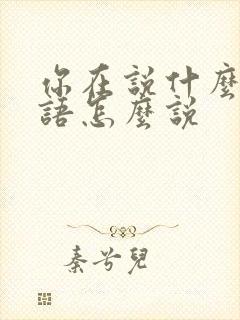 你在說什麼
語怎麼說
秦兮兒